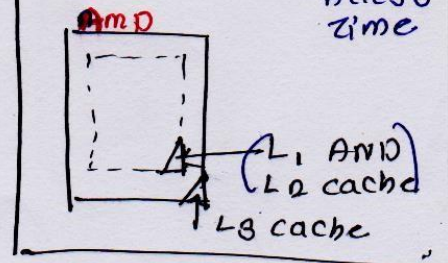 AMD
Time
L1 AND
L2 cache
L3 cache